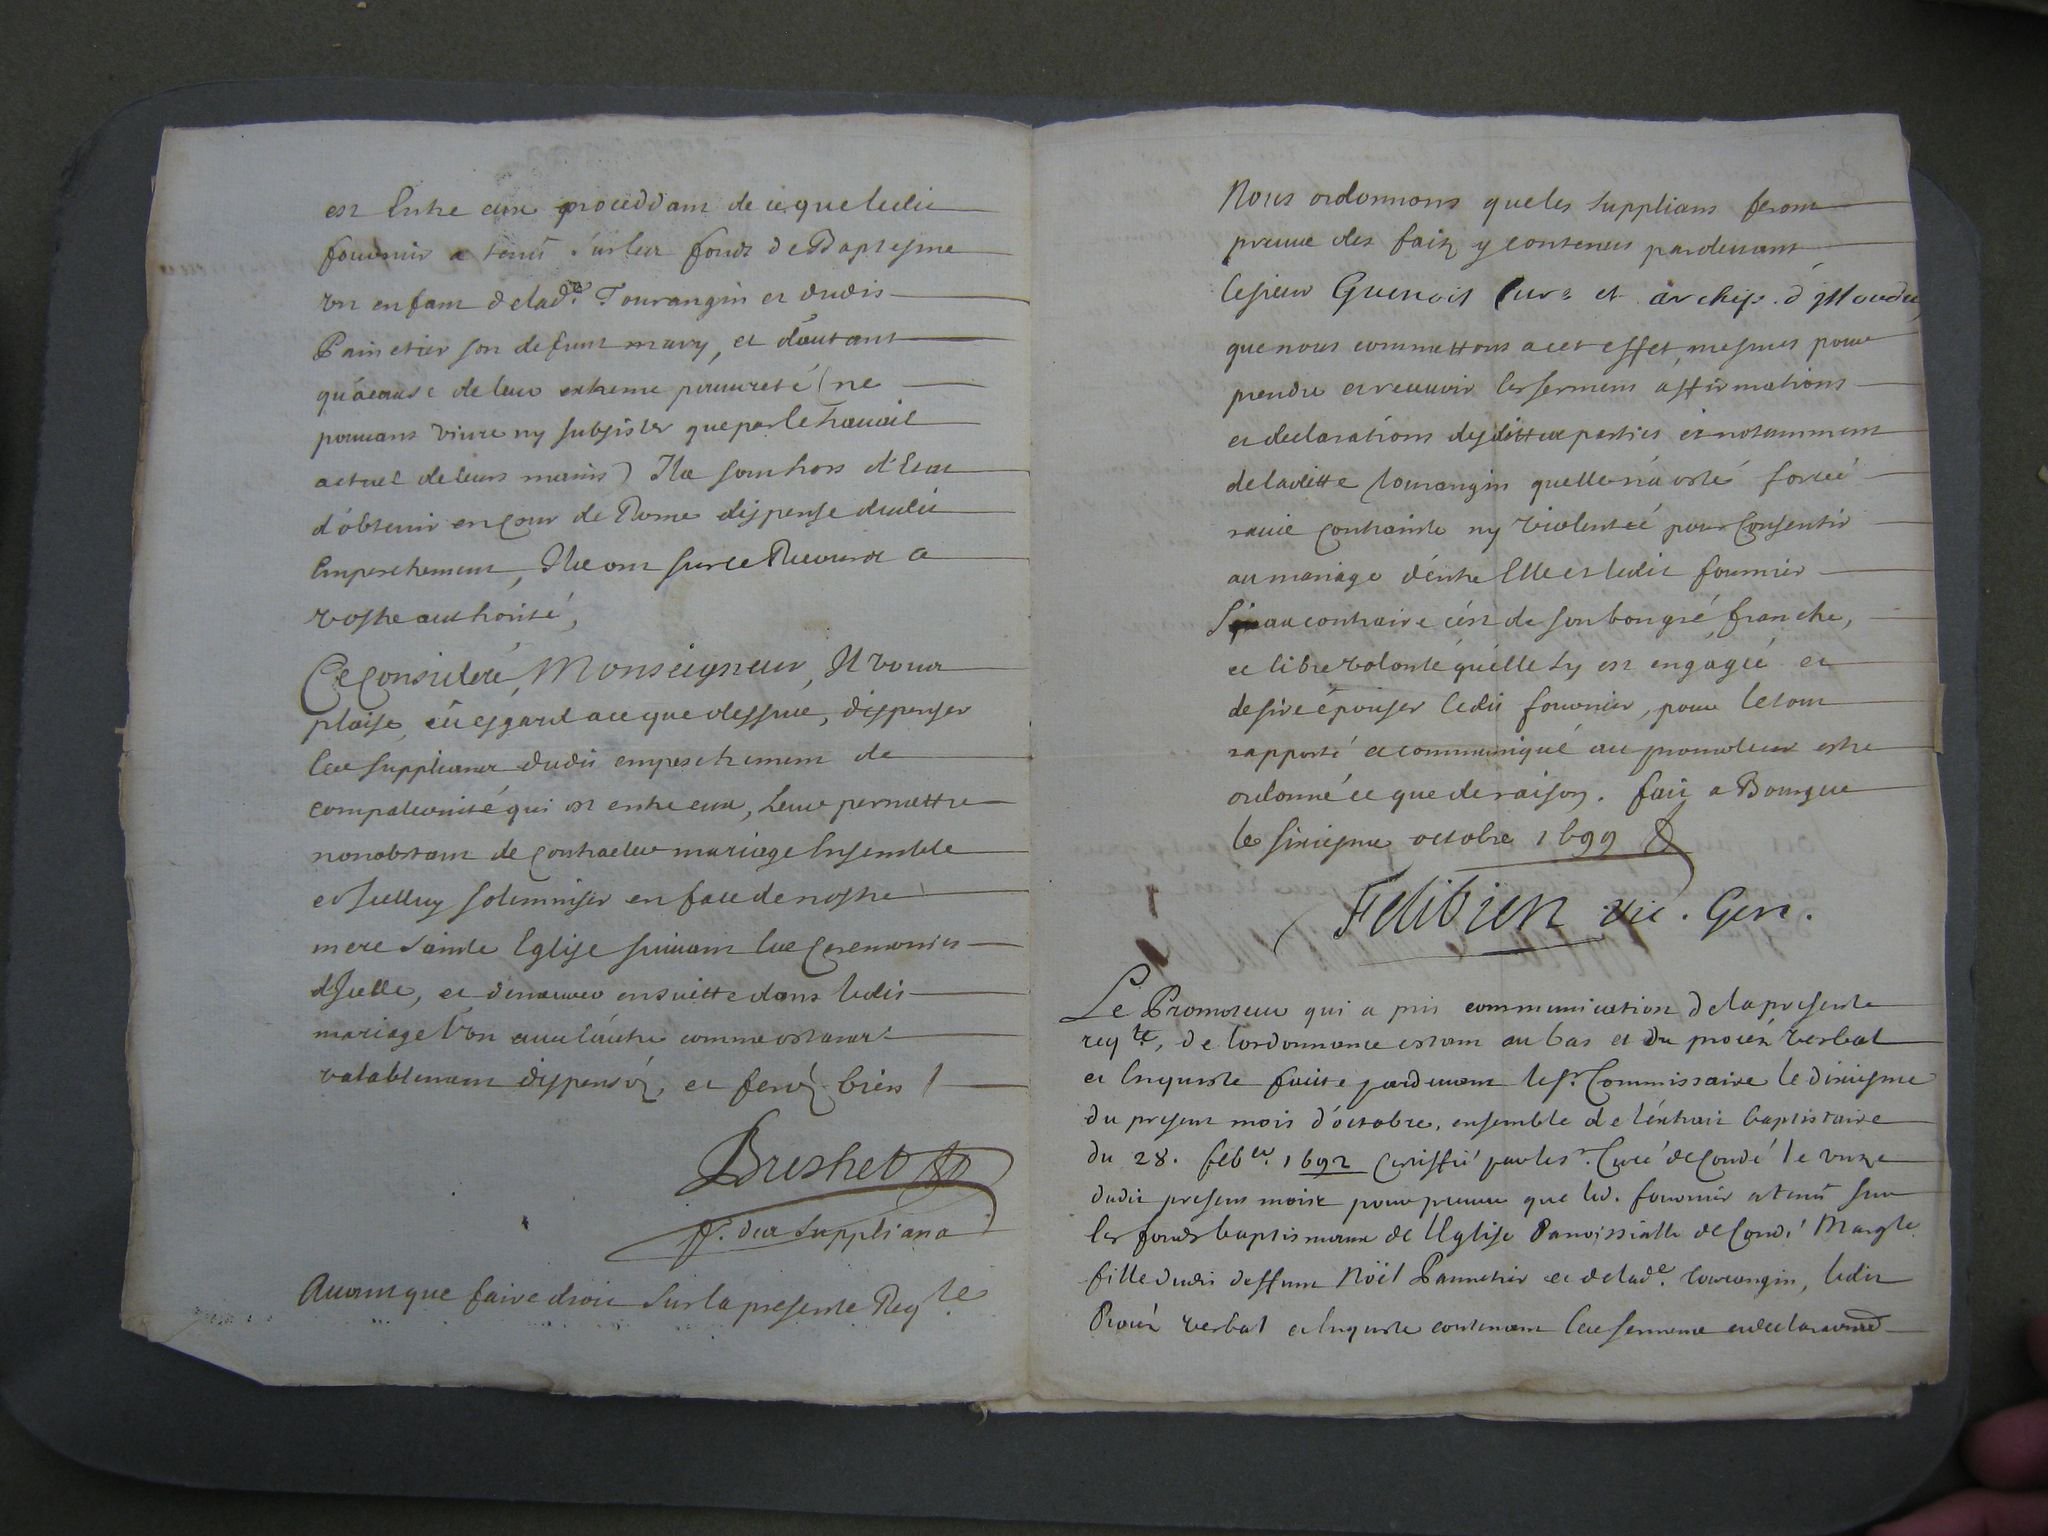 est Entre eux proceddant de ce que ledit
fournier a tenu sur les fonds de Baptesme
un enfant de lad.e Tourangin et dudit
Painetier son defunt mary, et d'autant
qu'acause de leur extreme pauureté (ne
pouuans viure ny subsister que par le trauail
actuel de leurs mains) Ils sont hors d'Estat
d'obtenir en Cour de Rome dispense dudit
Empeschement, Ils ont sur ce Recours a
vostre authorité,
Ce Consideré, Monseigneur, Il vous
plaise, eu esgard a ce que dessus, dispenser
les supplians dudit empeschement de
compaternité qui est entre eux, Leur permettre
nonobstant de Contracter mariage Ensemble
et Icelluy solemniser en face de nostre
mere Sainte Eglise suiuant les Ceremonies
d'Icelle, et demeurer ensuitte dans ledit
mariage l'un auec l'autre comme estant
valablement dispensés, et ferés bien /
Brishet
pr. des suppliants
Auant que faire droit sur la presente Reqte
Nous ordonnons que les supplians feront
preuue des faits y contenus pardeuant
le sieur Guenois Curé et archip. d'Issoudu
que nous commettons a cet effet, mesmes pour
prendre et receuoir les sermens affirmations
et declarations desdittes parties et notamment
de laditte Tourangin quelle n'a esté forcée
rauie Contrainte ny violentée pour Consentir
au mariage d'entre Elle et ledit fournier
Si au contraire c'est de son bon gré, franche,
et libre volonté qu'elle s'y est engagée et
desire épouser ledit fournier, pour le tout
rapporté et communiqué au promoteur estre
ordonné ce que de raison. fait a Bourges
le sixiesme octobre 1699
Felibien vic. Gen.
Le Promoteur qui a pris communication de la presente
reqte, de l'ordonnance estant au bas et du procés verbal
et Enqueste faitte pardeuant le sr. Commissaire le dixiesme
du present mois d'octobre, ensemble de l'extrait baptistaire
du 28. feber. 1692 Certiffié par le sr. Curé de Condé le unze
dudit present mois pour preuue que led. fournier a tenu sur
les fonds baptismaux de l'Eglise Parroissialle de Condé Margte
fille dudit deffunt Noël Pannetier et de lade. Tourangin, ledit
Procés verbal et Enqueste contenant les sermens et declarations